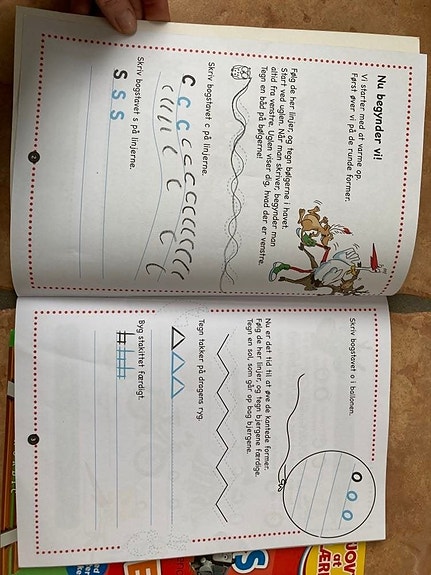 Nu begynder vi!
Vi starter med at varme op.
Først øver vi på de runde former.
Følg de her linjer, og tegn bølgerne i havet.
Start ved uglen. Når man skriver, begynder man
altid fra venstre. Uglen viser dig, hvad der er venstre.
Tegn en båd på bølgerne!
Skriv bogstavet c på linjerne.
c c c
Skriv bogstavet s på linjerne.
s s s
2
Skriv bogstavet o i ballonen.
o o o
Nu er det tid til at øve de kantede former.
Følg de her linjer, og tegn bjergene færdige.
Tegn en sol, som går op bag bjergene.
Tegn takker på dragens ryg.
Byg stakittet færdigt.
3